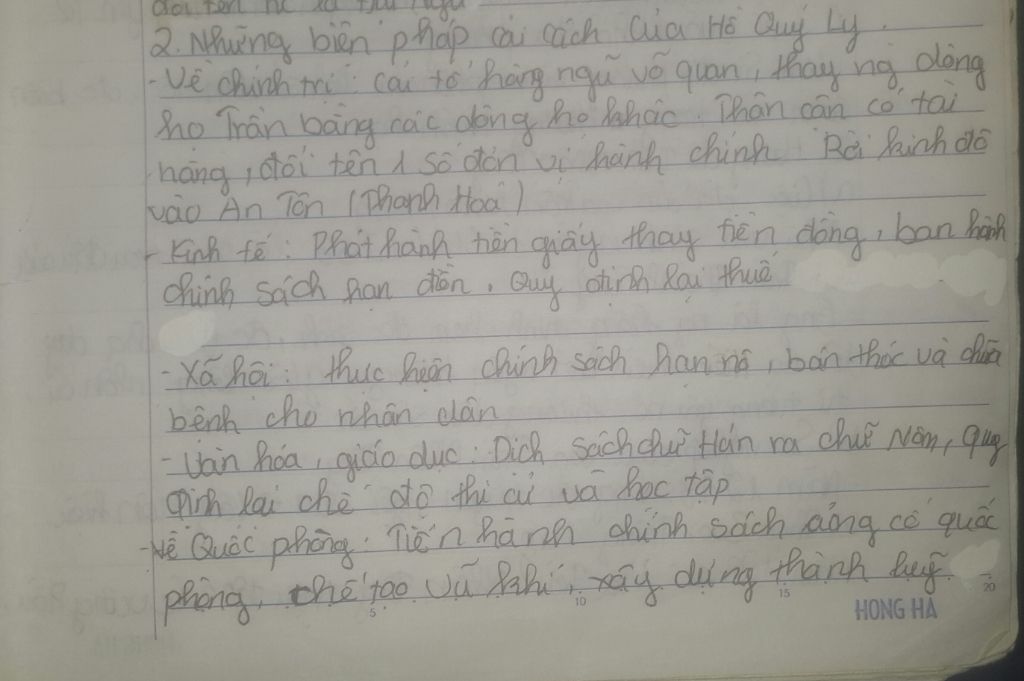 đổi tên nc là Đại Ngu
2. Những biện pháp cải cách của Hồ Quý Ly.
- Về chính trị: cải tổ hàng ngũ võ quan, thay ng dòng
họ Trần bằng các dòng họ khác. Thân cận có tài
năng, đổi tên 1 số đơn vị hành chính. Rời kinh đô
vào An Tôn (Thanh Hoá)
- Kinh tế: Phát hành tiền giấy thay tiền đồng, ban hành
chính sách hạn điền. Quy định lại thuế
- Xã hội: thực hiện chính sách hạn nô, bán thóc và chữa
bệnh cho nhân dân
- Văn hóa, giáo dục: Dịch sách chữ Hán ra chữ Nôm, quy
định lại chế độ thi cử và học tập
- Về Quốc phòng: Tiến hành chính sách củng cố quốc
phòng, chế tạo vũ khí, xây dựng thành luỹ
5 10 15 20
HONG HA